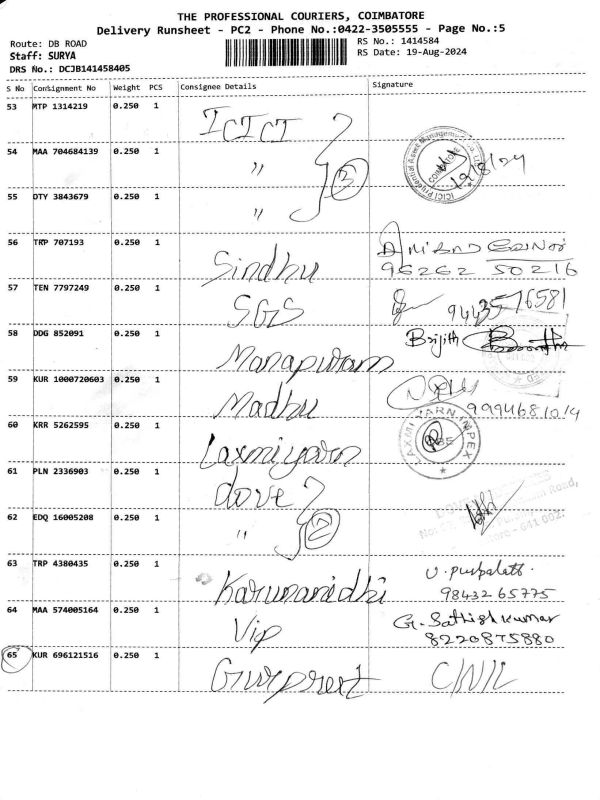 THE PROFESSIONAL COURIERS, COIMBATORE
Delivery Runsheet - PC2 - Phone No.:0422-3505555 - Page No.:5
Route: DB ROAD
RS No.: 1414584
Staff: SURYA
RS Date: 19-Aug-2024
DRS No.: DCJB141458405
S No Consignment No Weight PCS Consignee Details Signature
53 MTP 1314219 0.250 1 ICICI
54 MAA 704684139 0.250 1 " 3 ICICI Prudential Asset Management Co. 19/8/24
55 DTY 3843679 0.250 1 "
56 TRP 707193 0.250 1 Sindhu
96262 50216
57 TEN 7797249 0.250 1 SGS 9443576581
58 DDG 852091 0.250 1 Manapuram Brijith
59 KUR 1000720603 0.250 1 Madhu
60 KRR 5262595 0.250 1 Laxmiyarn LAXMI YARN IMPEX
61 PLN 2336903 0.250 1 dove
62 EDQ 16005208 0.250 1 " 2
63 TRP 4380435 0.250 1 Karunanidhi
98432 65775
64 MAA 574005164 0.250 1 Vip G. Sathish kumar
8220875880
65 KUR 696121516 0.250 1 Gurpreet